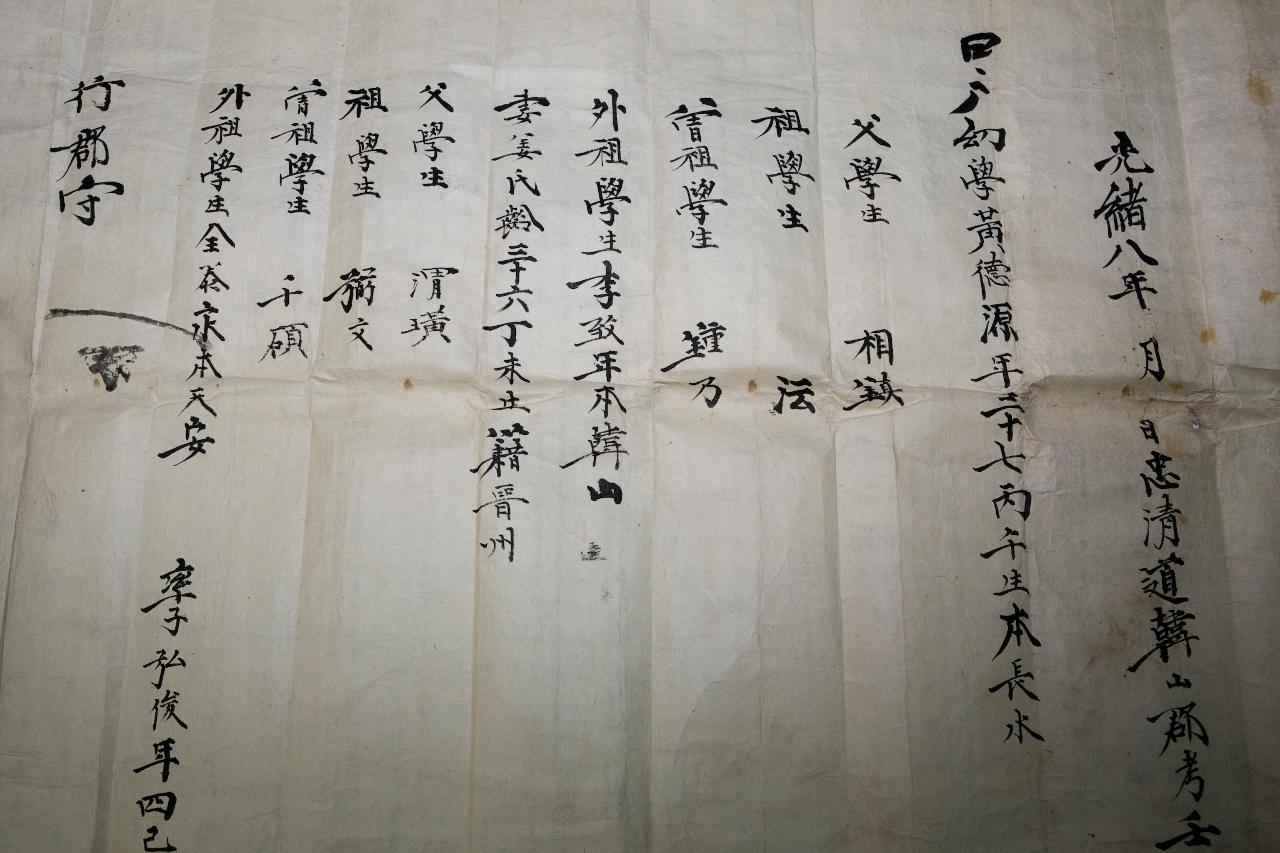 光緖八年 月 日忠清道韓山郡考壬
口戶幼學黃德源年三十七丙午生本長水
父學生 相鎭
祖學生 沄
曾祖學生 鍾乃
外祖學生李致年本韓山
妻姜氏齡三十六丁未生籍晋州
父學生 渭璜
祖學生 弼文
曾祖學生 千碩
外祖學生全 本天安
率子弘俊年四己
行郡守